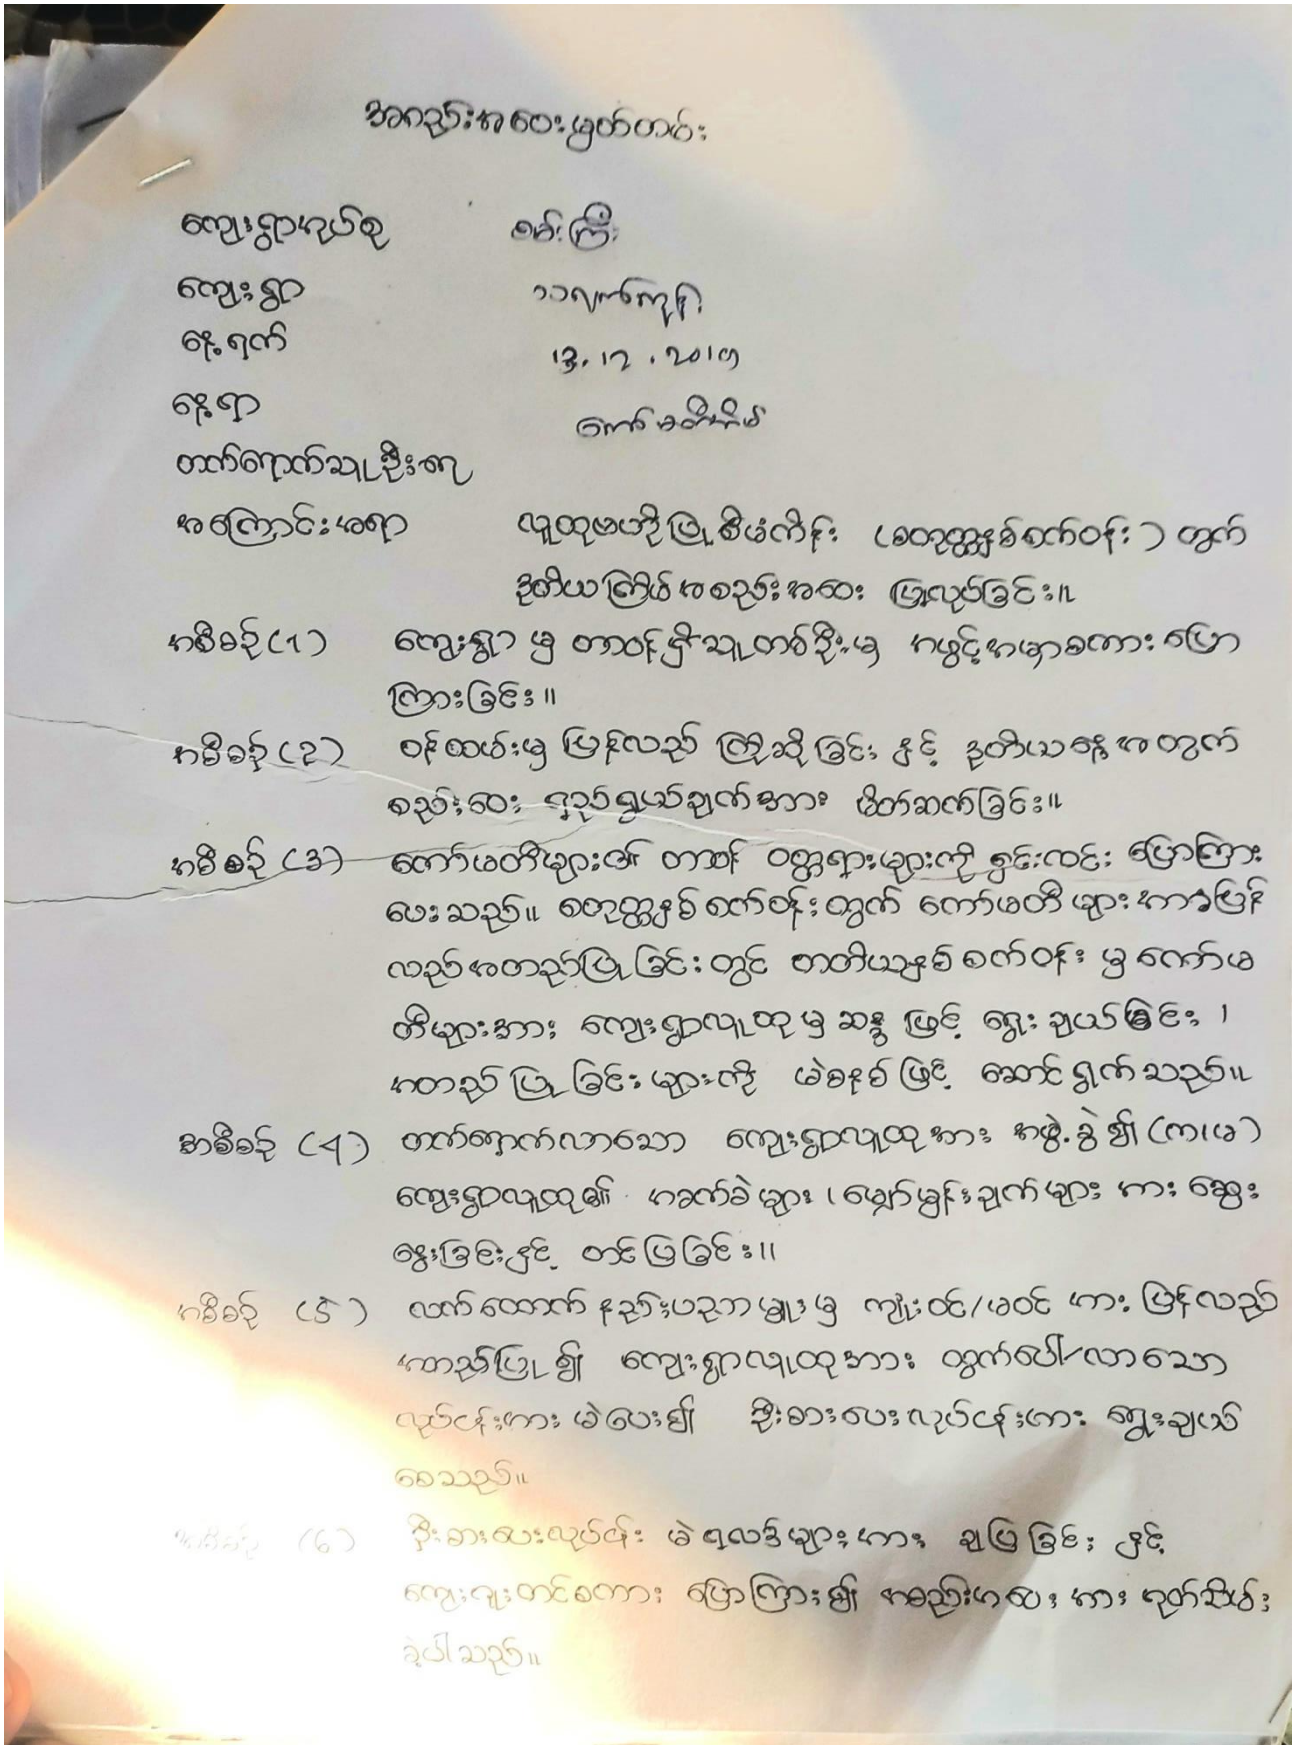 အစည်းအဝေးမှတ်တမ်း
ကျေးရွာအုပ်စု စမ်းကြီး
ကျေးရွာ
နေ့ရက် 13.12.2017
နေ့ရာ ကော်မတီအိမ်
တက်ရောက်သူဦးရေ
အကြောင်းအရာ လူထုဗဟိုပြုစီမံကိန်း (စတုတ္ထနှစ်စက်ဝန်း) တွက်
ဒုတိယကြိမ်အစည်းအဝေး ပြုလုပ်ခြင်း။
အစီစဉ် (1) ကျေးရွာ မှ တာဝန်ရှိသူတစ်ဦးမှ အဖွင့်အမှာစကား ပြော
ကြားခြင်း။
အစီစဉ် (2) ဝန်ထမ်းမှ ပြန်လည် ကြိုဆိုခြင်း နှင့် ဒုတိယနေ့အတွက်
စည်းဝေး ရည်ရွယ်ချက်အား မိတ်ဆက်ခြင်း။
အစီစဉ် (3) ကော်မတီများ၏ တာဝန် ဝတ္တရားများကို ရှင်းလင်း ပြောကြား
ပေးသည်။ စတုတ္ထနှစ်စက်ဝန်းတွက် ကော်မတီများအားပြန်
လည်အတည်ပြုခြင်းတွင် တတိယနှစ်စက်ဝန်း မှ ကော်မ
တီများအား ကျေးရွာလူထုမှ ဆန္ဒ ဖြင့် ရွေးချယ်ခြင်း ၊
အတည်ပြုခြင်းများကို မဲစနစ်ဖြင့် ဆောင်ရွက်သည်။
အစီစဉ် (4) တက်ရောက်လာသော ကျေးရွာလူထုအား အဖွဲ့ခွဲ၍ (ကျ၊မ)
ကျေးရွာလူထု၏ အခက်ခဲများ၊ မျှော်မှန်းချက်များ အား ဆွေး
နွေးခြင်းနှင့် တင်ပြခြင်း။
အစီစဉ် (5) လက်ထောက်နည်းပညာမှူးမှ ကျုံးဝင်/မဝင် အား ပြန်လည်
အတည်ပြု၍ ကျေးရွာလူထုအား ထွက်ပေါ်လာသော
လုပ်ငန်းအား မဲပေး၍ ဦးစားပေးလုပ်ငန်းအား ရွေးချယ်
စေသည်။
အစီစဉ် (6) ဦးစားပေးလုပ်ငန်း မဲရလဒ်များအား ချပြခြင်း နှင့်
ကျေးဇူးတင်စကား ပြောကြား၍ အစည်းအဝေးအား ရုတ်သိမ်း
ခဲ့ပါသည်။